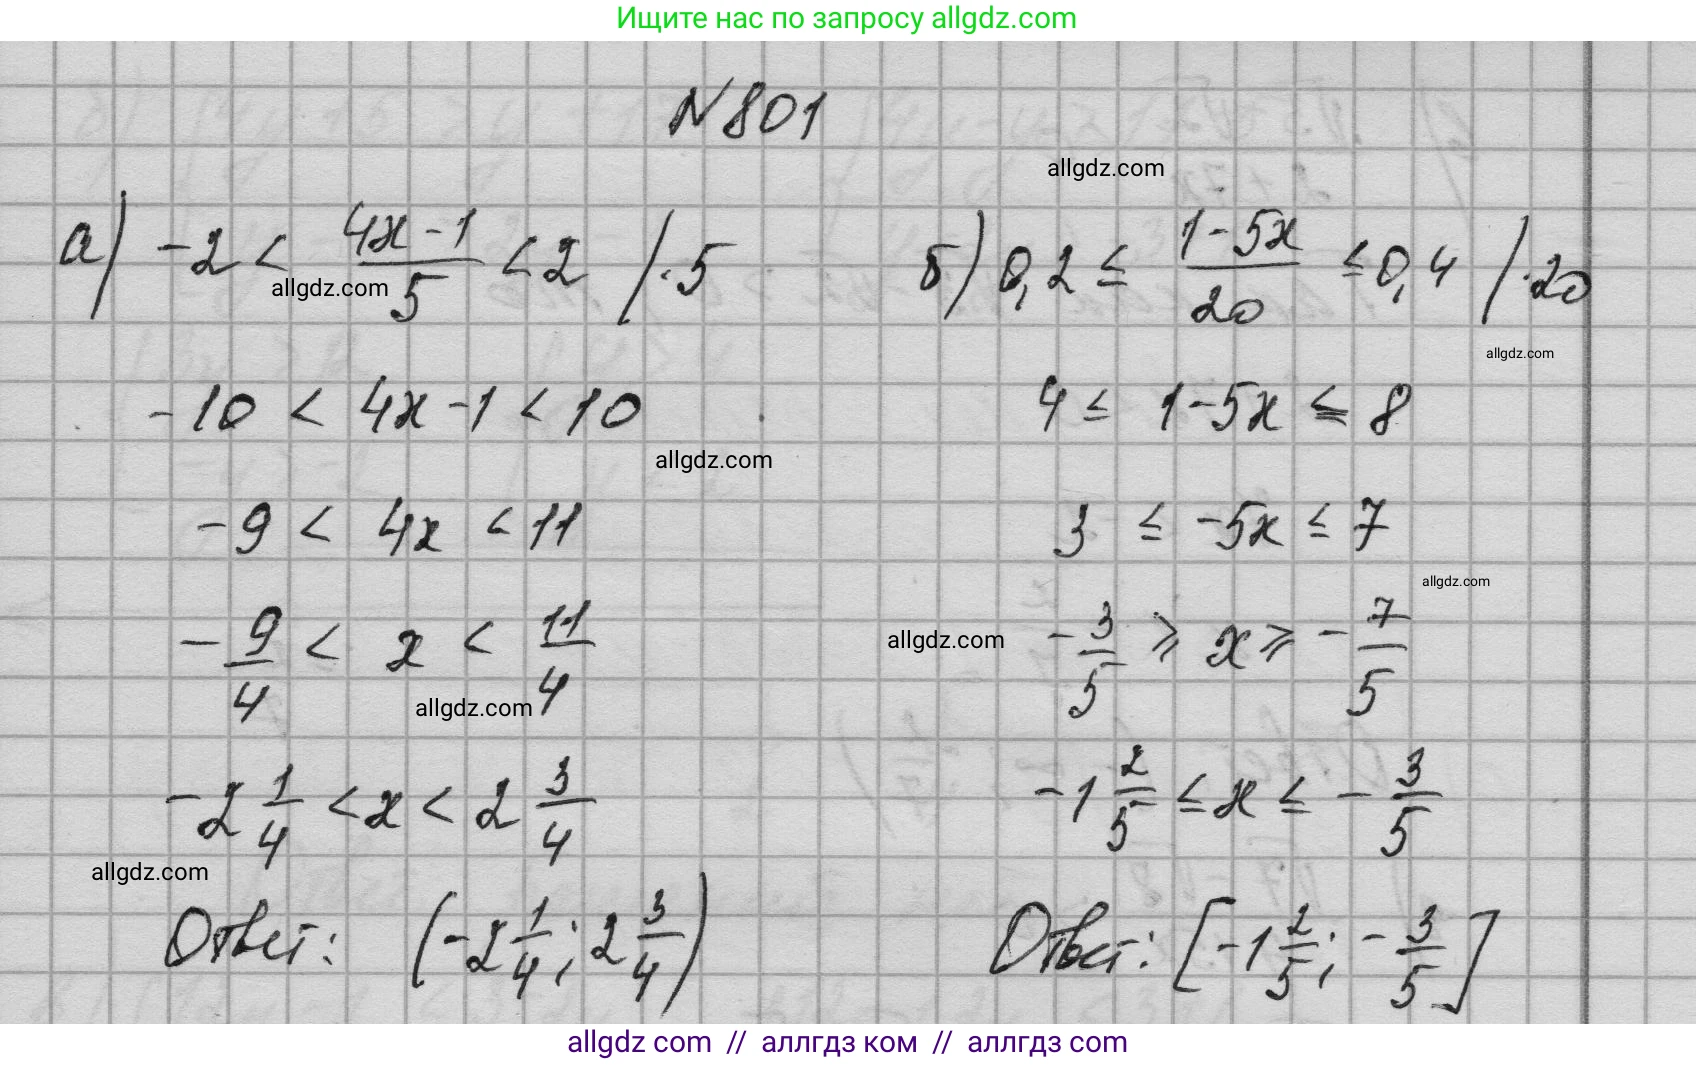 Ищите нас по запросу allgdz.com
N 801
allgdz.com
а) -2 < (4x-1)/5 < 2 / ·5
allgdz.com
-10 < 4x-1 < 10
allgdz.com
-9 < 4x < 11
-9/4 < x < 11/4
allgdz.com
-2 1/4 < x < 2 3/4
allgdz.com
Ответ: (-2 1/4; 2 3/4)
б) 0,2 ≤ (1-5x)/20 ≤ 0,4 / ·20
allgdz.com
4 ≤ 1-5x ≤ 8
3 ≤ -5x ≤ 7
allgdz.com
allgdz.com
-3/5 ⩾ x ⩾ -7/5
-1 2/5 ≤ x ≤ -3/5
Ответ: [-1 2/5; -3/5]
allgdz com // аллгдз ком // аллгдз com